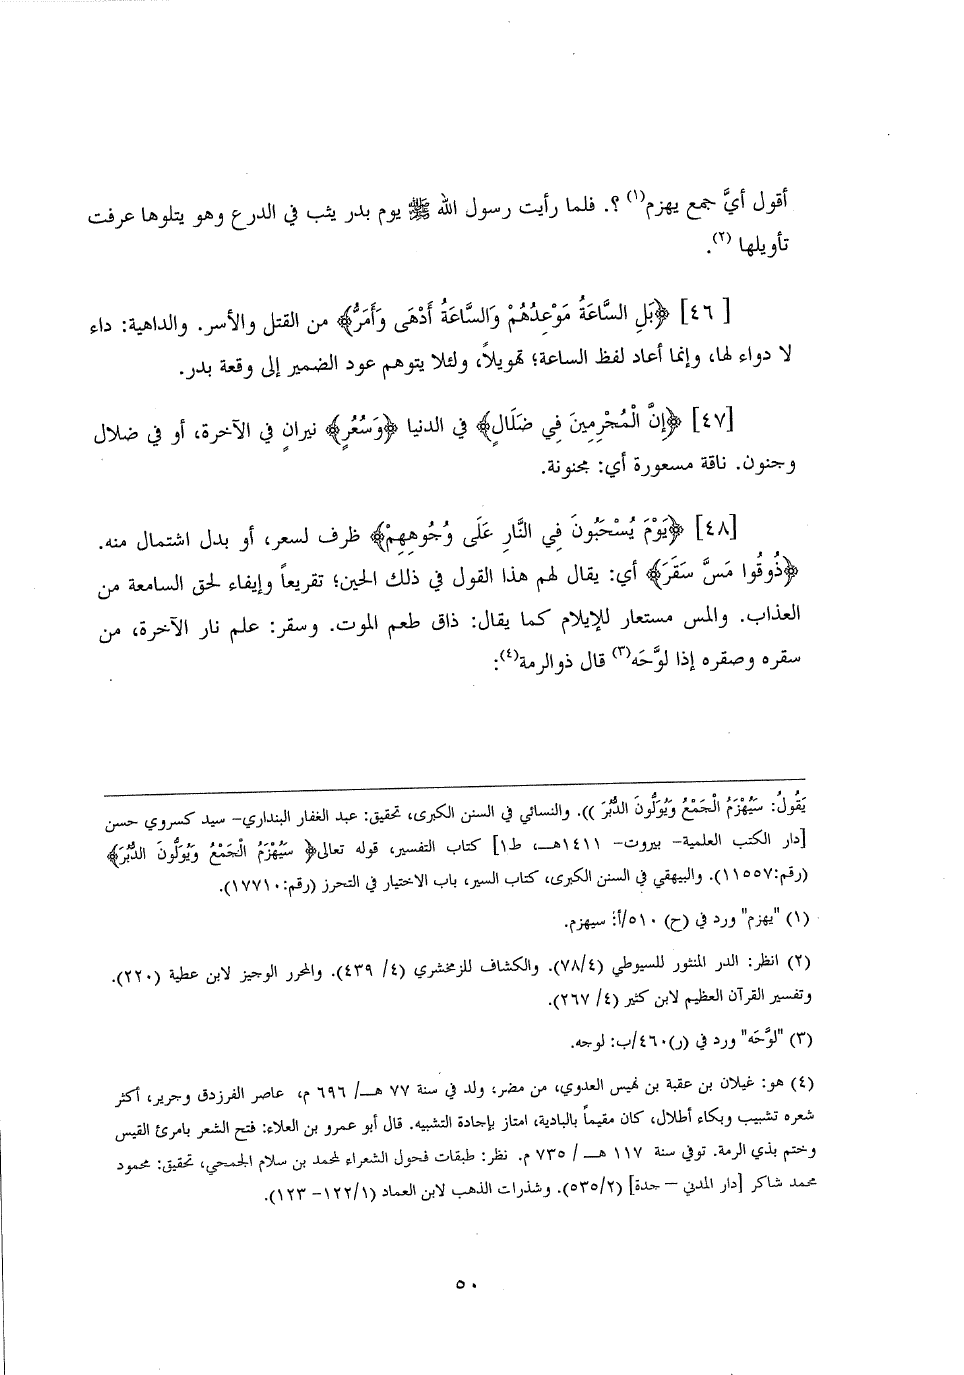 أقول أيَّ جمع يهزم(١) ؟. فلما رأيت رسول الله ﷺ يوم بدر يثب في الدرع وهو يتلوها عرفت
تأويلها (٢).
[ ٤٦] ﴿بَلِ السَّاعَةُ مَوْعِدُهُمْ وَالسَّاعَةُ أَدْهَى وَأَمَرُّ﴾ من القتل والأسر. والداهية: داء
لا دواء لها، وإنما أعاد لفظ الساعة؛ تهويلاً، ولئلا يتوهم عود الضمير إلى وقعة بدر.
[٤٧] ﴿إِنَّ الْمُجْرِمِينَ فِي ضَلَالٍ﴾ في الدنيا ﴿وَسُعُرٍ﴾ نيرانٍ في الآخرة، أو في ضلال
وجنون. ناقة مسعورة أي: مجنونة.
[٤٨] ﴿يَوْمَ يُسْحَبُونَ فِي النَّارِ عَلَى وُجُوهِهِمْ﴾ ظرف لسعر، أو بدل اشتمال منه.
﴿ذُوقُوا مَسَّ سَقَرَ﴾ أي: يقال لهم هذا القول في ذلك الحين؛ تقريعاً وإيفاء لحق السامعة من
العذاب. والمس مستعار للإيلام كما يقال: ذاق طعم الموت. وسقر: علم نار الآخرة، من
سقره وصقره إذا لوَّحَه(٣) قال ذوالرمة(٤):
يَقُولُ: سَيُهْزَمُ الْجَمْعُ وَيُوَلُّونَ الدُّبُرَ )). والنسائي في السنن الكبرى، تحقيق: عبد الغفار البنداري- سيد كسروي حسن
[دار الكتب العلمية- بيروت- ١٤١١هـ، ط١] كتاب التفسير، قوله تعالى﴿ سَيُهْزَمُ الْجَمْعُ وَيُوَلُّونَ الدُّبُرَ﴾
(رقم:١١٥٥٧). والبيهقي في السنن الكبرى، كتاب السير، باب الاختيار في التحرز (رقم:١٧٧١٠).
(١) "يهزم" ورد في (ح) ٥١٠/أ: سيهزم.
(٢) انظر: الدر المنثور للسيوطي (٧٨/٤). والكشاف للزمخشري (٤/ ٤٣٩). والمحرر الوجيز لابن عطية (٢٢٠).
وتفسير القرآن العظيم لابن كثير (٤/ ٢٦٧).
(٣) "لوَّحَه" ورد في (ر)٤٦٠/ب: لوجه.
(٤) هو: غيلان بن عقبة بن نهيس العدوي، من مضر، ولد في سنة ٧٧ هـ/ ٦٩٦ م، عاصر الفرزدق وجرير، أكثر
شعره تشبيب وبكاء أطلال، كان مقيماً بالبادية، امتاز بإجادة التشبيه. قال أبو عمرو بن العلاء: فتح الشعر بامرئ القيس
وختم بذي الرمة. توفي سنة ١١٧ هـ / ٧٣٥ م. نظر: طبقات فحول الشعراء لمحمد بن سلام الجمحي، تحقيق: محمود
محمد شاكر [دار المدني – جدة] (٥٣٥/٢). وشذرات الذهب لابن العماد (١٢٢/١- ١٢٣).
٥٠